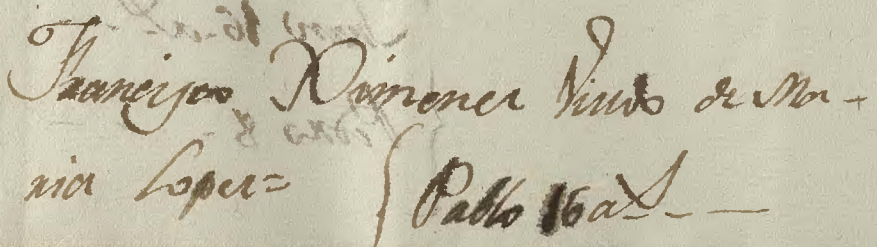 Francisco Ximenez Viudo de Ma-
ria Lopez= { Pablo 16 a.s